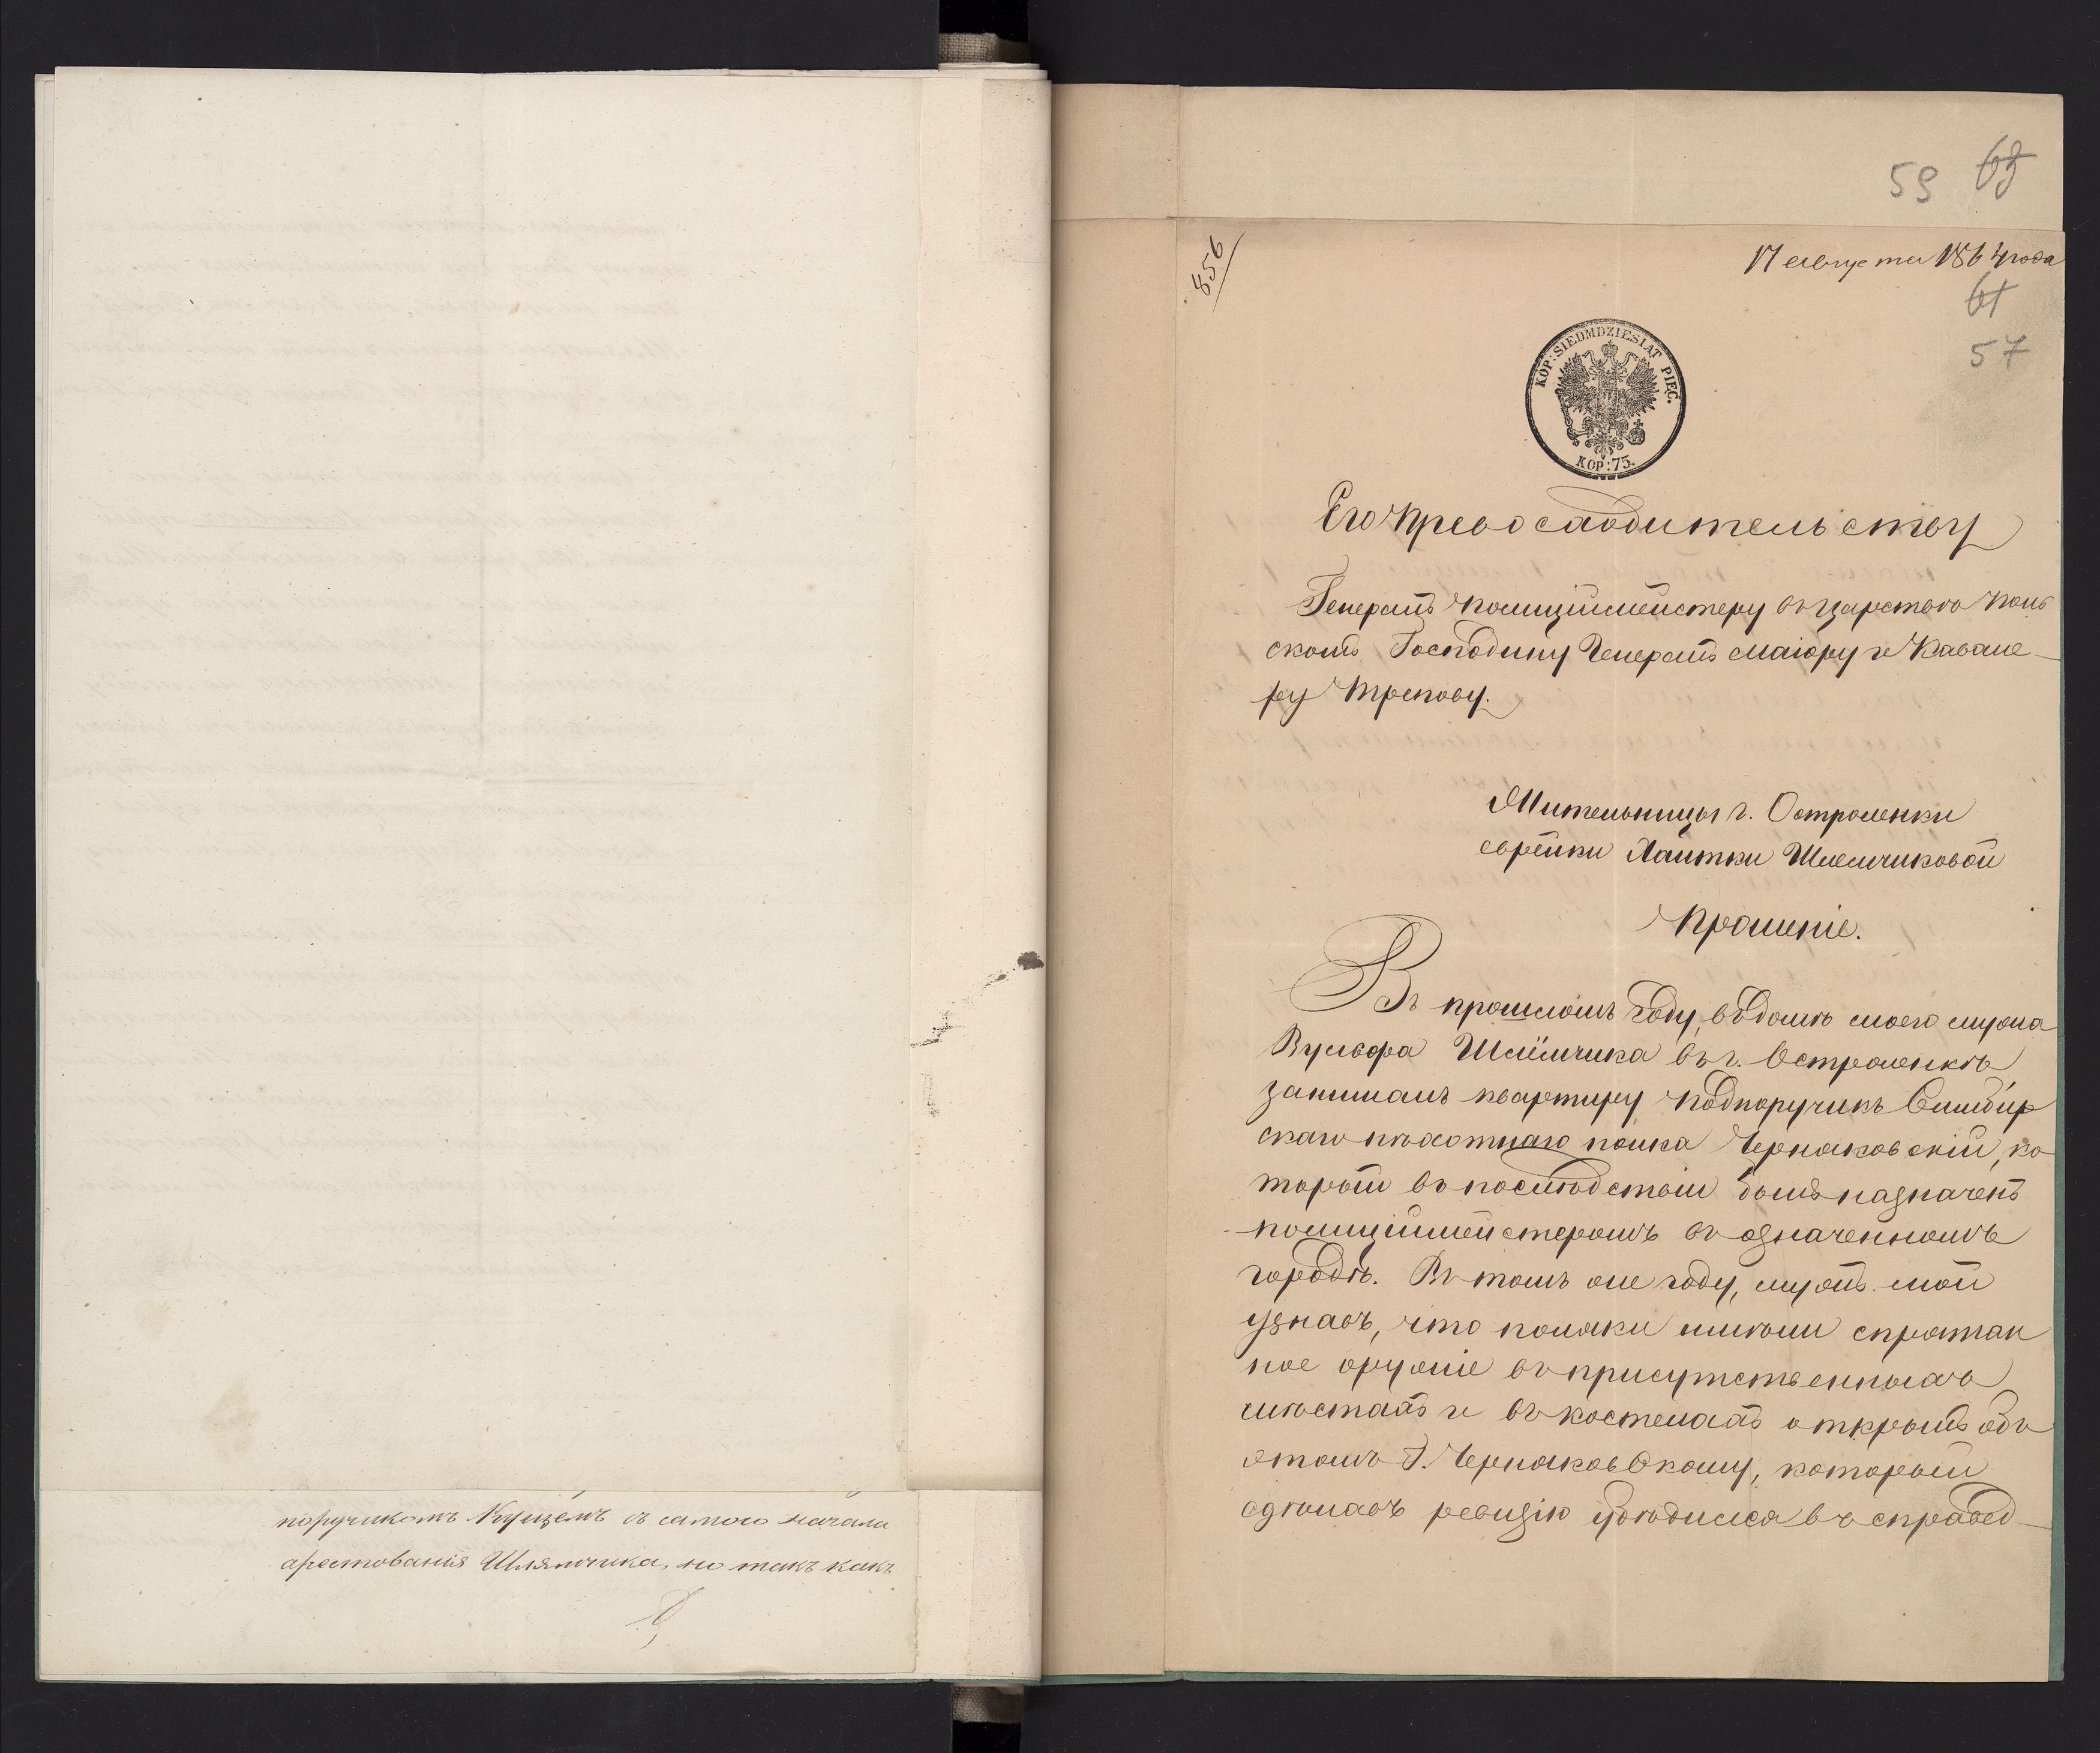 поручикомъ Куцемъ съ самого начала
арестованія Шлямчика, но такъ какъ
59 63
856
17 августа 1864 года
61
57
KOP: SIEDMDZIESIAT PIĘC.
KOP: 75.
Его Превосходительству
Генералъ Полицiймейстеру въ царствѣ Поль
скомъ Господину Генералъ маіору и Кавале-
ру Трепову.
Жительницы г. Остроленки
еврейки Хаитки Шлемчиковой
Прошеніе.
Въ прошломъ году, въ домѣ моего мужа
Вульфа Шлёмчика въ г. Остроленкѣ
занималъ квартиру Подпоручикъ Симбир
скаго пѣхотнаго полка Черняковскій, ко
торый въ послѣдствіи былъ назначенъ
полицiймейстеромъ въ означенномъ
городѣ. Въ томъ же году, мужъ мой
узнавъ, что поляки имѣли спрятан
ное оружіе въ присутственныхъ
мѣстахъ и въ костелахъ открылъ объ
этомъ Г. Черняковскому, который
сдѣлавъ ревизію убѣдился въ справед-